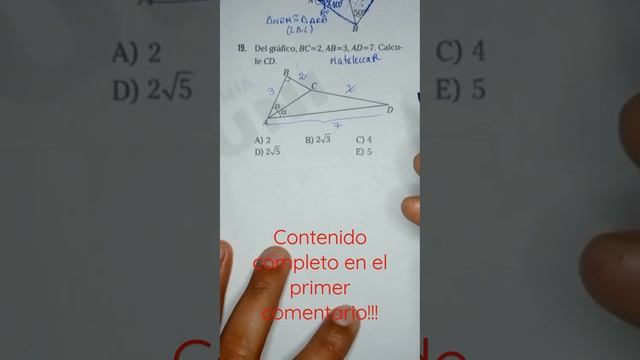 △NRM≅△ARB
(LAL)
100°
50°
B
19. Del gráfico, BC=2, AB=3, AD=7. Calcu-
le CD.
MateleccaR
B
2
C
3
x
α
α
D
A
7
A) 2 B) 2√3 C) 4
D) 2√5 E) 5
A) 2
D) 2√5
C) 4
E) 5
Contenido
completo en el
primer
comentario!!!